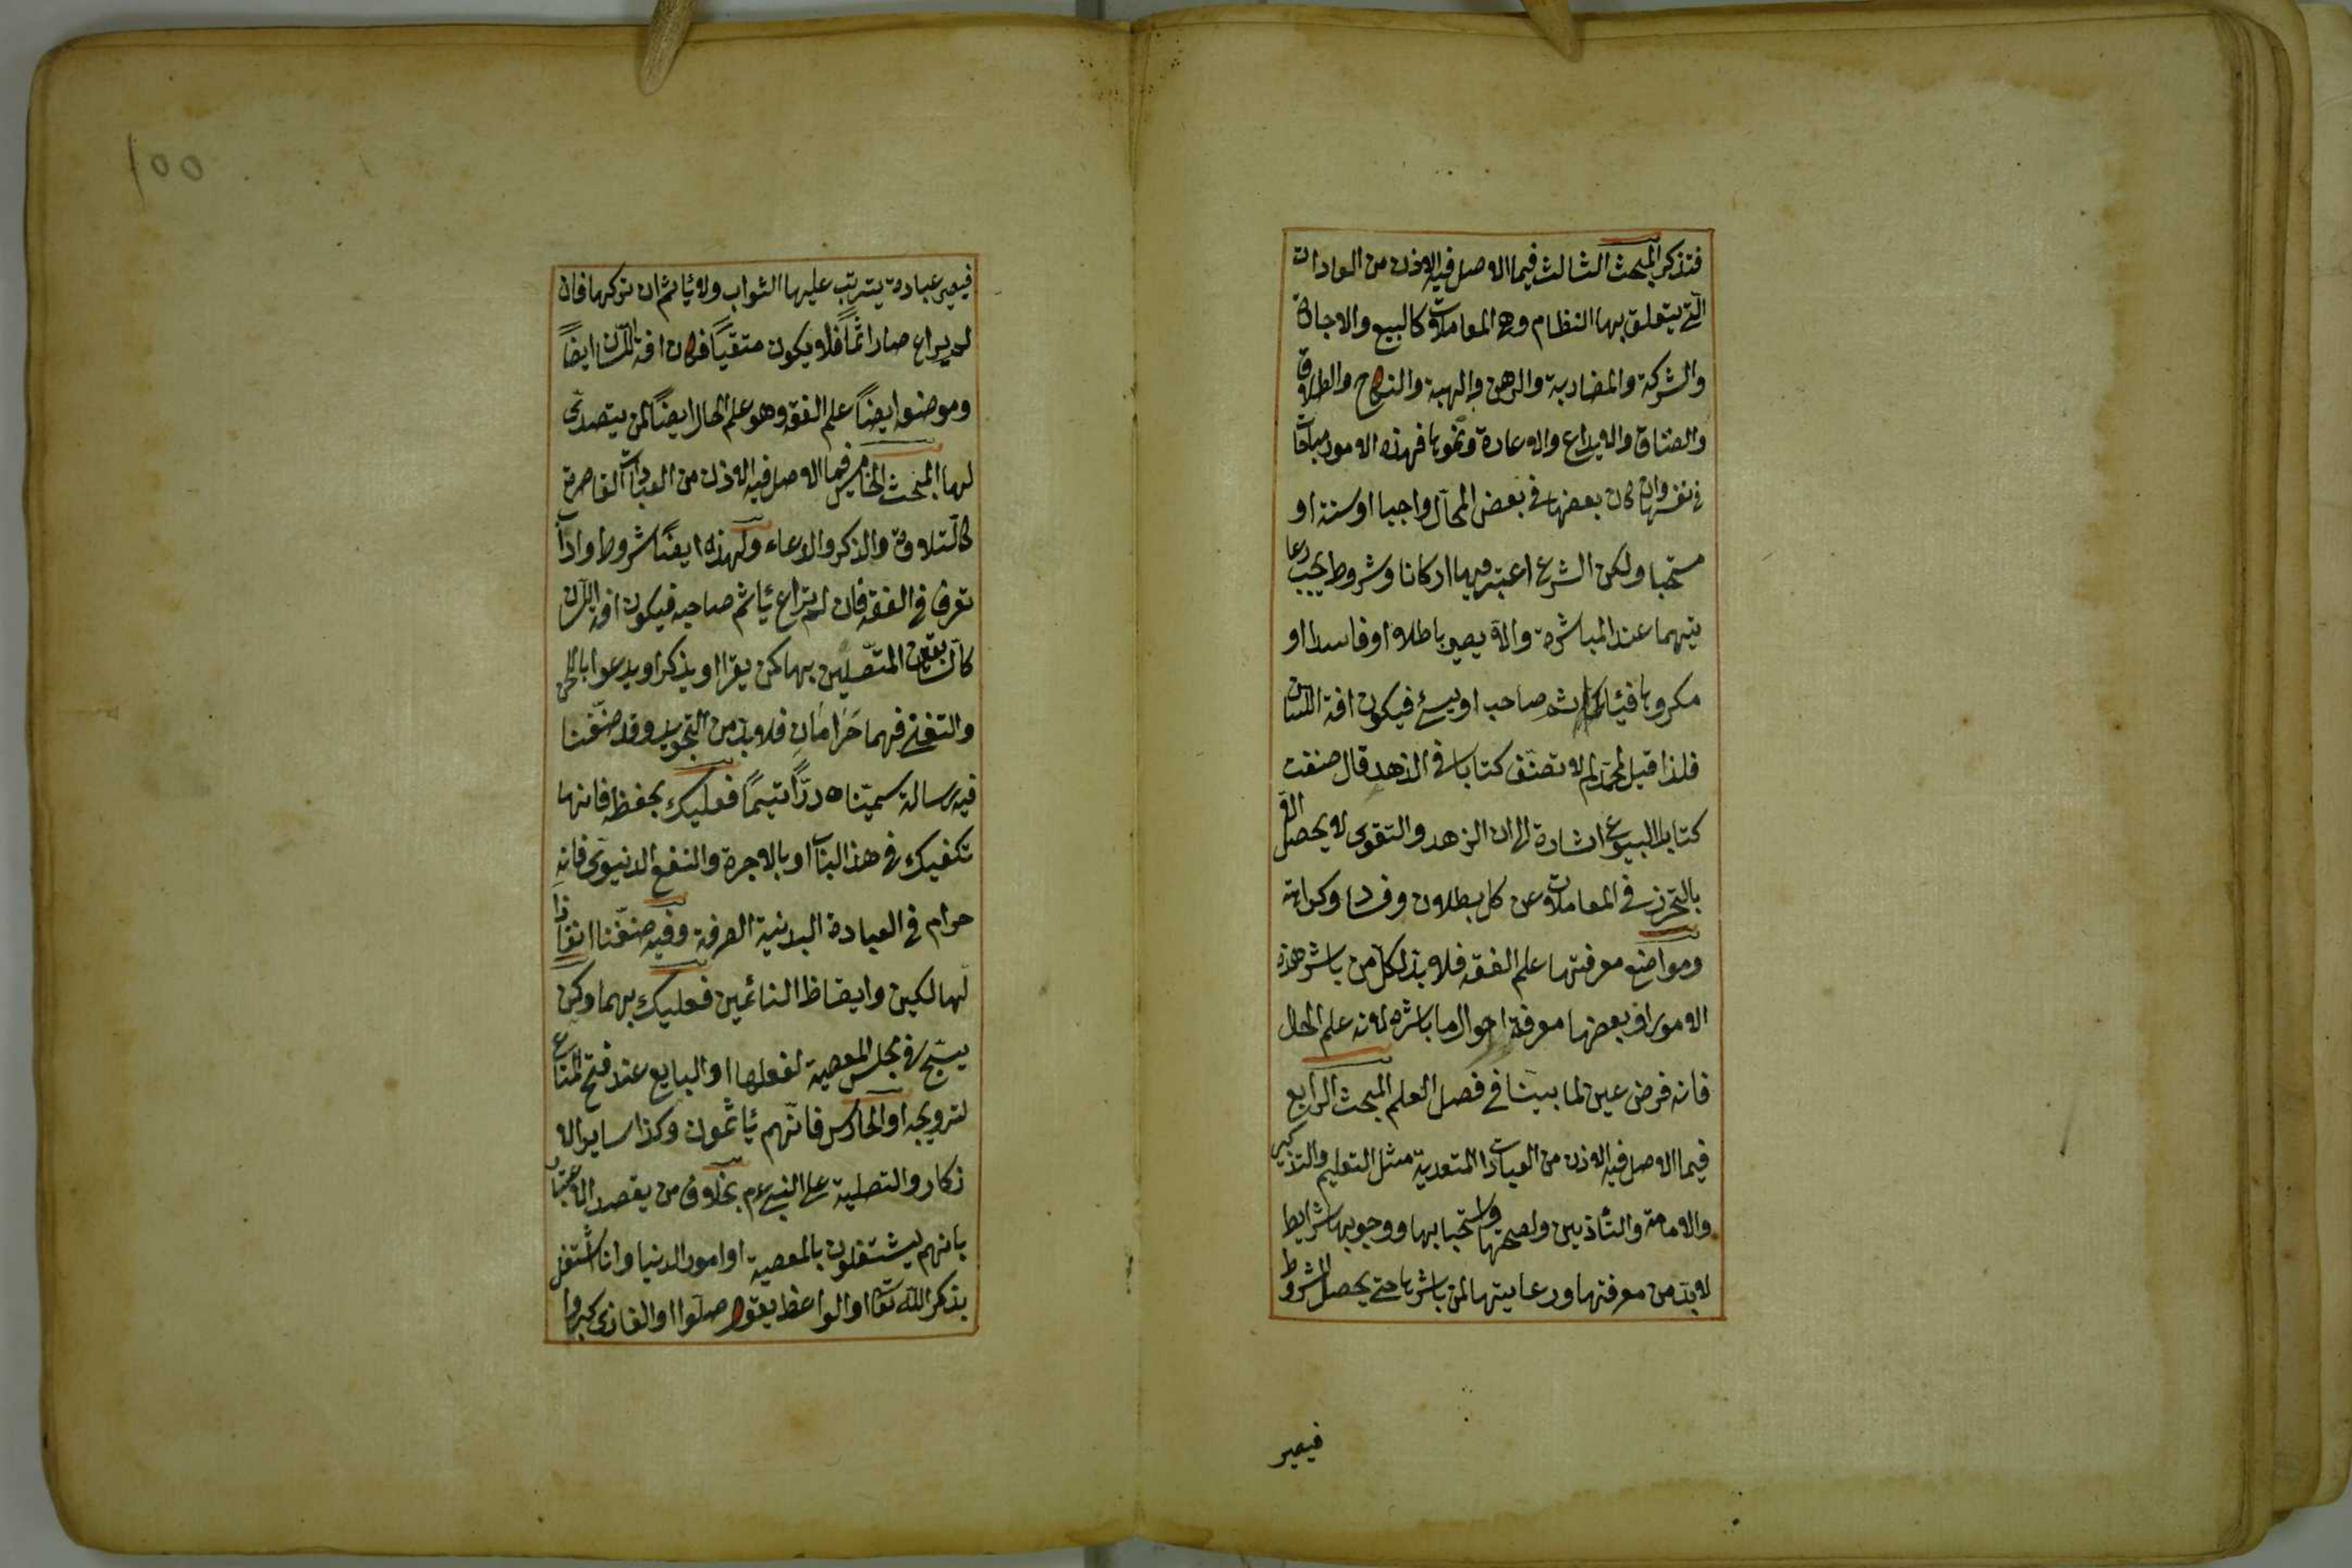 فتذكر المبحث الثالث فيما الاصل فيه الاذن من العادات
التى يتعلق بها النظام وهى المعاملات كالبيع والاجارة
والشركة والمضاربة والرهن والهبة والنكاح والطلاق
والعتاق والايداع والاعادة ونحوها فهذه الامور مباحات
فى نفسها وان كان بعضها فى بعض المحال واجبا او سنة او
مستحبا ولكن الشرع اعتبر فيها اركانا وشروطا يجب رعا
يتهما عند المباشرة والا يصير باطلا او فاسدا او
مكروها صاحبه او يسئ فيكون افة اللسان
فلذا قيل لمحمد لم لا تصنف كتابا فى الزهد قال صنفت
كتاب البيوع اشارة الى ان الزهد والتقوى لا يحصل الا
بالتحرز فى المعاملات عن كل بطلان وفساد وكراهة
ومواضع معرفتها علم الفقه فلا بد لكل من باشر هذه
الامور او بعضها معرفة احوال ما باشره لانه علم الحال
فانه فرض عين لما بينا فى فصل العلم المبحث الرابع
فيما الاصل فيه الاذن من العبادات المتعدية مثل التعليم والتذكير
والامامة والتأذين ولصحتها واستحبابها ووجوبها شرايط
لابد من معرفتها ورعايتها لمن باشرها حتى يحصل المشروط
فيصير
١٥٥
فيصير عبادة يترتب عليها الثواب ولا يأثم ان تركها فان
لم يراع صار اثماً فلا يكون متقياً فكان افة اللسان ايضاً
وموضعه ايضاً علم الفقه وهو علم الحال ايضاً لمن يتصدى
لها المبحث الخامس فيما الاصل فيه الاذن من العبادات القاصرة
كالتلاوة والذكر والدعاء ولهذه ايضاً شروط واداب
تعرف فى الفقه فان لم تراع يأثم صاحبه فيكون افة اللسان
كالسابقين المتصلين بها كمن يقرا او يذكر او يدعوا بالحن
والتغنى فهما حَرَامَانِ فلا بد من التجويد وقد صنّفنا
فيه رسالة سميناه درّاً يتيماً فعليك بحفظه فانها
تكفيك فى هذا الباب او بالاجرة والنفع الدنيوى فانه
حرام فى العبادة البدنية الصرفة وفيه صنّفنا انقاذ
الهالكين وايقاظ النائمين فعليك بهما وكمن
يسبّح فى مجلس المعصية لفعلها او البايع عند فتح المتاع
لترويجه او الحارس فانّهم يأثمون وكذا ساير الا
ذكار والتصلية على النبى ع م بخلاف من يقصد الاعتبار
بانهم يشتغلون بالمعصية او امور الدنيا وانا اشتغل
بذكر الله تعا او الواعظ يقول صلوا او الغازى كبروا